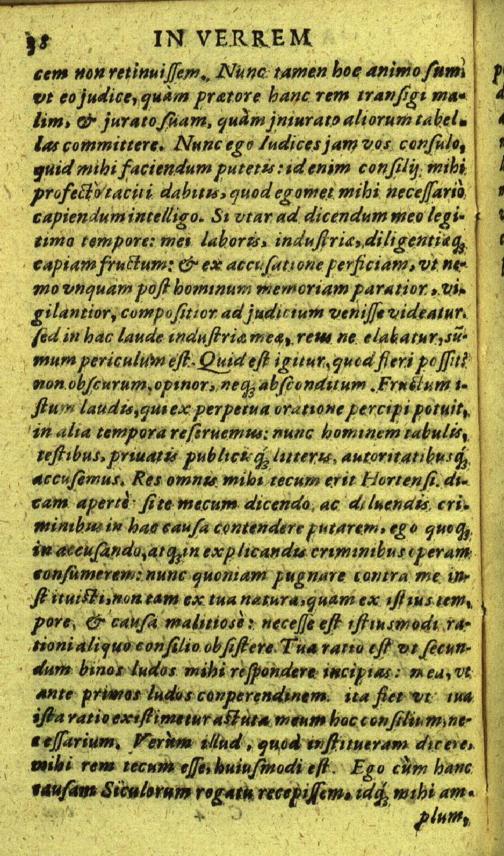 38 IN VERREM
cem non retinuissem. Nunc tamen hoc animo sum,
vt eo judice, quàm prætore hanc rem transigi ma-
lim, & jurato suam, quàm jniurato aliorum tabel-
las committere. Nunc ego Iudices jam vos consulo,
quid mihi faciendum putetis: id enim consilij mihi
profecto taciti dabitis, quod egomet mihi necessariò
capiendum intelligo. Si vtar ad dicendum meo legi-
timo tempore: mei laboris, industriæ, diligentiæq;
capiam fructum: & ex accusatione perficiam, vt ne-
mo vnquam post hominum memoriam paratior, vi-
gilantior, compositior ad judicium venisse videatur.
sed in hac laude industriæ meæ, reus ne elabatur, sū-
mum periculum est. Quid est igitur, quod fieri possit?
non obscurum, opinor, neq; absconditum. Fructum i-
stum laudis, qui ex perpetua oratione percipi potuit,
in alia tempora reseruemus: nunc hominem tabulis,
testibus, priuatis publicisq; litteris, autoritatibusq;
accusemus. Res omnis mihi tecum erit Hortensi. di-
cam apertè: si te mecum dicendo, ac diluendis cri-
minibus in hac causa contendere putarem, ego quoq;
in accusando, atq; in explicandis criminibus operam
consumerem: nunc quoniam pugnare contra me in-
stituisti, non tam ex tua natura, quam ex istius tem,
pore, & causa malitiosè: necesse est istiusmodi ra-
tioni aliquo consilio obsistere. Tua ratio est vt secun-
dum binos ludos mihi respondere incipias: mea, vt
ante primos ludos conperendinem. ita fiet vt tua
ista ratio existimetur astuta, meum hoc consilium, ne-
cessarium. Verùm illud, quod institueram dicere,
mihi rem tecum esse, huiusmodi est. Ego cùm hanc
causam Siculorum rogatu recepissem, idq; mihi am-
plum,